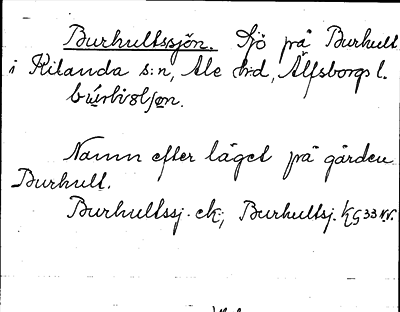 Burhultssjön. Sjö på Burhult
i Kilanda s:n, Ale hd, Älfsborgs l.
Namn efter läget på gården
Burhult.
Burhultssj. ek; Burhultsj. kG 33 NV.